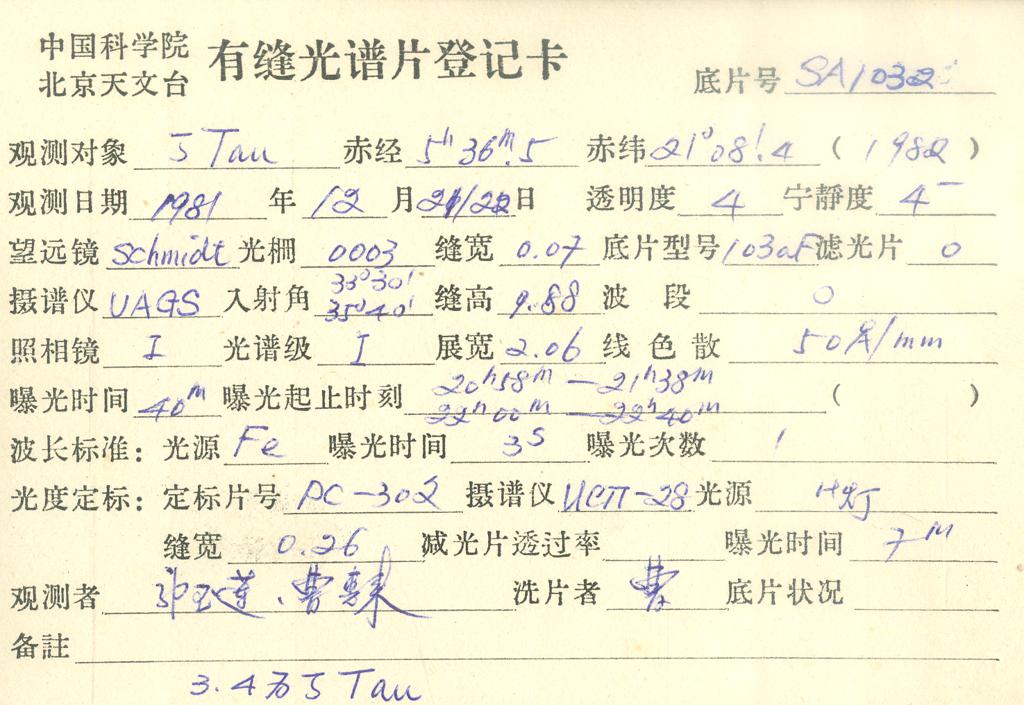 中国科学院
北京天文台
有缝光谱片登记卡
底片号 SA10302
观测对象 ζ Tau 赤经 5ʰ36ᵐ.5 赤纬 21°08′.4 (1982)
观测日期 1981 年 12 月 21/22 日 透明度 4 宁静度 4⁻
望远镜 Schmidt 光栅 0003 缝宽 0.07 底片型号 103aF 滤光片 0
摄谱仪 UAGS 入射角 33°30′ 35°40′ 缝高 9.88 波段 0
照相镜 I 光谱级 I 展宽 2.06 线色散 50Å/mm
曝光时间 40ᵐ 曝光起止时刻 20ʰ58ᵐ—21ʰ38ᵐ ( )
22ʰ00ᵐ—22ʰ40ᵐ
波长标准: 光源 Fe 曝光时间 3ˢ 曝光次数 1
光度定标: 定标片号 PC-302 摄谱仪 ИСП-28 光源 H灯
缝宽 0.26 减光片透过率 曝光时间 7ᵐ
观测者 莲、曹 洗片者 曹 底片状况
备註
3.4为ζ Tau